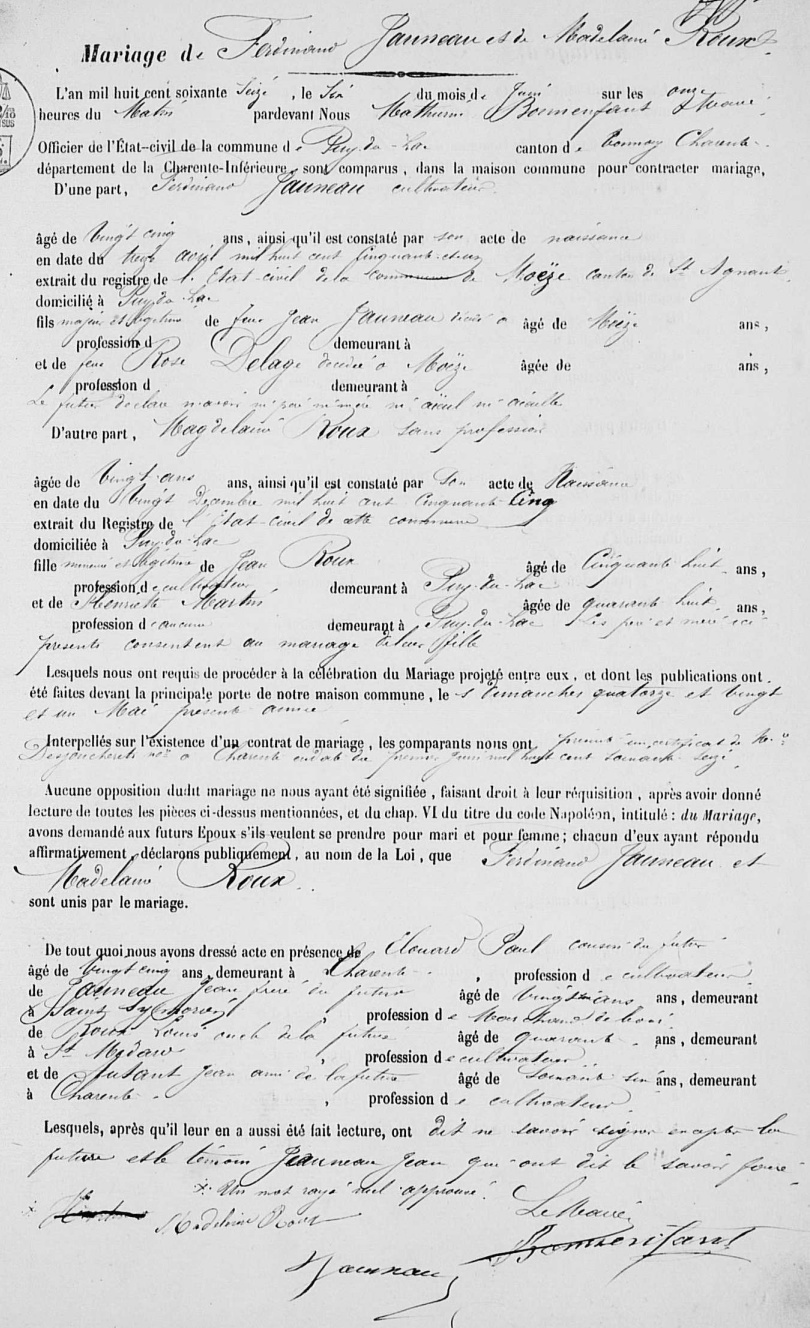 Mariage de Ferdinand Jauneau et de Madelaine Roux
L'an mil huit cent soixante Seize, le Six du mois de Juin sur les onze
heures du Matin pardevant Nous Mathurin Bonnenfant Maire
Officier de l'État-civil de la commune de Puy-du-Lac canton de Tonnay Charente
département de la Charente-Inférieure, sont comparus, dans la maison commune pour contracter mariage,
D'une part, Ferdinand Jauneau cultivateur
âgé de Vingt cinq ans, ainsi qu'il est constaté par son acte de naissance
en date du treize avril mil huit cent cinquante
extrait du registre de l'État-civil de la Commune de Moëze canton de St Agnant
domicilié à Puy-du-Lac
fils majeur et légitime de feu Jean Jauneau décédé à âgé de Moëze ans,
profession d demeurant à
et de feue Rose Delage décédée à Moëze âgée de ans,
profession d demeurant à
Le futur déclare n'avoir ni père ni mère ni aïeul ni aïeulle
D'autre part, Magdelaine Roux sans profession
âgée de Vingt ans ans, ainsi qu'il est constaté par Son acte de Naissance
en date du Vingt Décembre mil huit cent Cinquante Cinq
extrait du Registre de l'État-civil de cette commune
domiciliée à Puy-du-Lac
fille mineure et légitime de Jean Roux âgé de Cinquante huit ans,
profession de cultivateur demeurant à Puy-du-Lac
et de Henriette Martin âgée de quarante huit ans,
profession d aucune demeurant à Puy-du-Lac Les père et mère ici
présents consentent au mariage de leur fille
Lesquels nous ont requis de procéder à la célébration du Mariage projeté entre eux, et dont les publications ont
été faites devant la principale porte de notre maison commune, le s Dimanches quatorze et vingt
et un Mai présente année
Interpellés sur l'existence d'un contrat de mariage, les comparants nous ont présenté un certificat de Me
à Charente en date du premier Juin mil huit cent soixante Seize
Aucune opposition dudit mariage ne nous ayant été signifiée, faisant droit à leur réquisition, après avoir donné
lecture de toutes les pièces ci-dessus mentionnées, et du chap. VI du titre du code Napoléon, intitulé : du Mariage,
avons demandé aux futurs Epoux s'ils veulent se prendre pour mari et pour femme; chacun d'eux ayant répondu
affirmativement, déclarons publiquement, au nom de la Loi, que Ferdinand Jauneau et
Madelaine Roux
sont unis par le mariage.
De tout quoi nous avons dressé acte en présence de Edouard Paul cousin du futur
âgé de vingt cinq ans, demeurant à Charente, profession de cultivateur
de Jauneau Jean frère du futur âgé de vingt ans, demeurant
à Saint , profession de Marchand de bois
de Roux Louis oncle de la future âgé de quarante ans, demeurant
à St Médard, profession de cultivateur
et de Jean ami de la future âgé de soixante six ans, demeurant
à Charente, profession de cultivateur
Lesquels, après qu'il leur en a aussi été fait lecture, ont dit ne savoir signer excepter la
future et le témoin Jauneau Jean qui ont dit le savoir faire
Un mot rayé nul approuvé.
Madelaine Roux
Le Maire
Bonnenfant
Jauneau